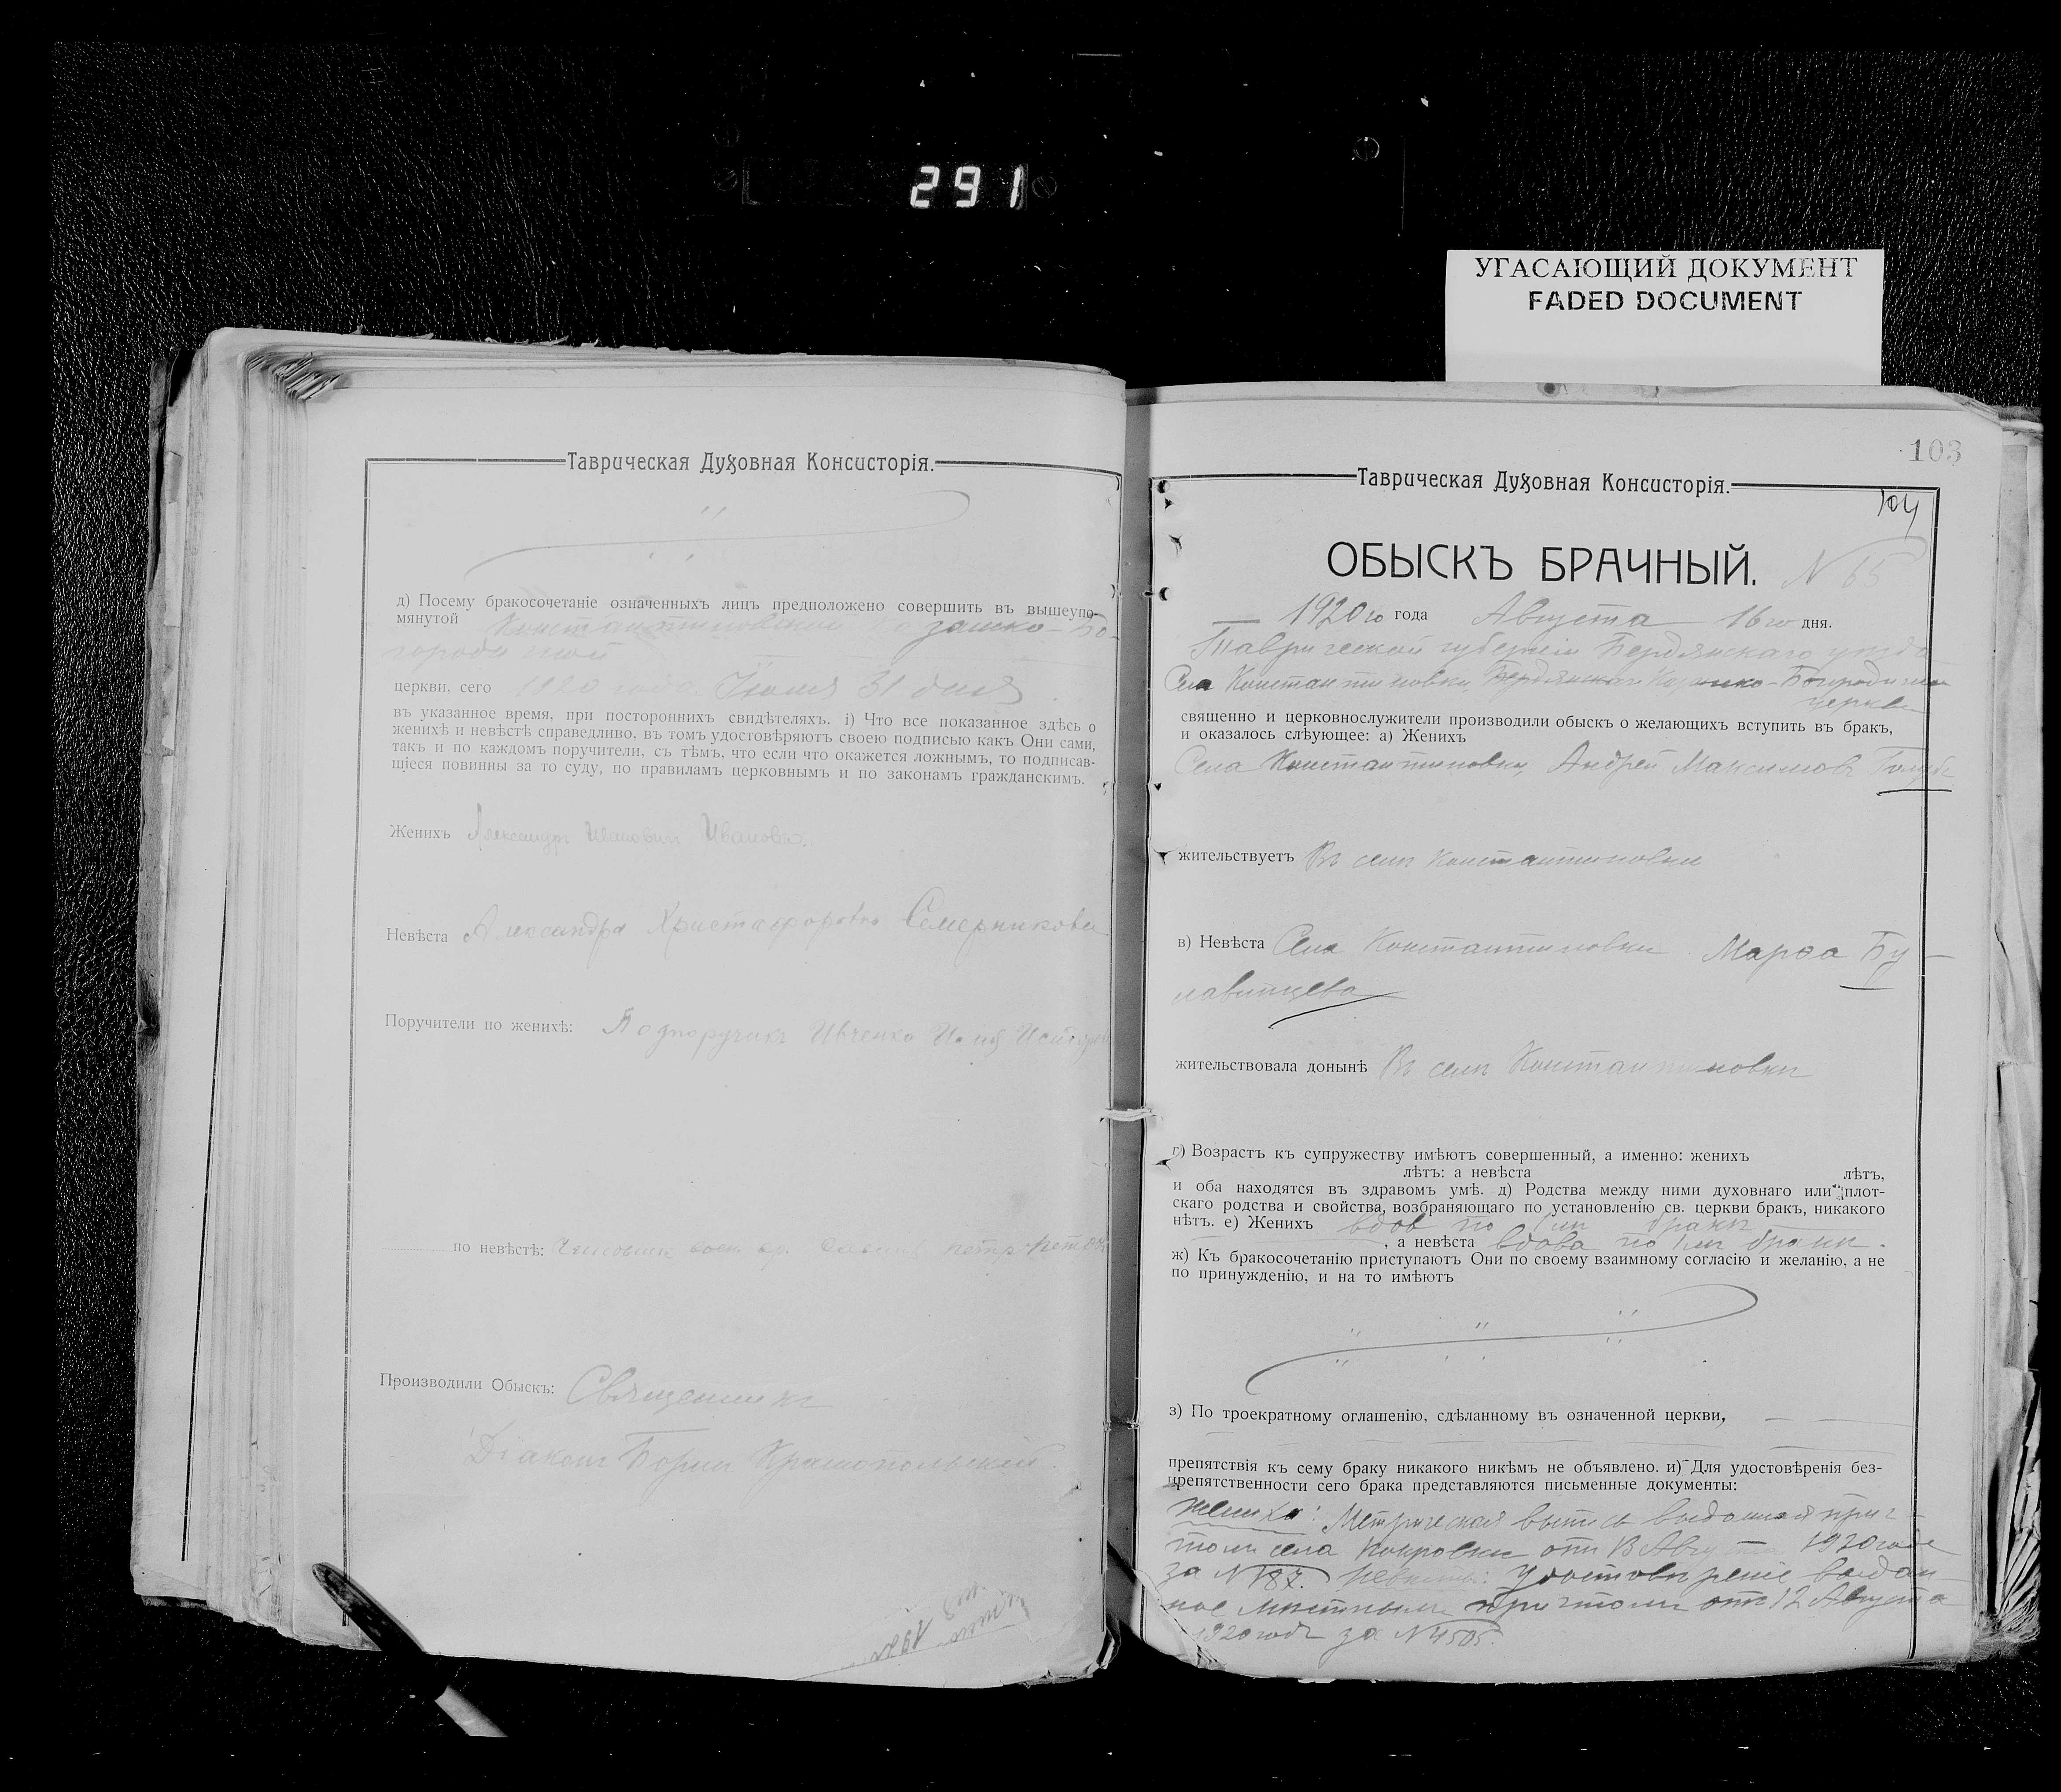 291
УГАСАЮЩИЙ ДОКУМЕНТ
FADED DOCUMENT
Таврическая Духовная Консисторія.
д) Посему бракосочетаніе означенныхъ лицъ предположено совершить въ вышеупо-
мянутой Константиновской Казанско-Бо-
городичной
церкви, сего 1920 года Іюля 31 дня
въ указанное время, при постороннихъ свидѣтеляхъ. і) Что все показанное здѣсь о
женихѣ и невѣстѣ справедливо, въ томъ удостовѣряютъ своею подписью какъ Они сами,
такъ и по каждомъ поручители, съ тѣмъ, что если что окажется ложнымъ, то подписав-
шіеся повинны за то суду, по правиламъ церковнымъ и по законамъ гражданскимъ.
Женихъ Александръ Ивановичъ Ивановъ.
Невѣста Александра Христафоровна Семерникова
Поручители по женихѣ: Подпоручикъ Ивченко
по невѣстѣ: Чиновникъ воен. вр.
Производили Обыскъ: Священникъ
Діаконъ Борисъ Краснопольскій.
103
Таврическая Духовная Консисторія.
104
ОБЫСКЪ БРАЧНЫЙ. N 65
1920го года Августа 16го дня.
Таврической губерніи Бердянскаго уѣзда
Села Константиновки Казанско-Богородичной
церкви
священно и церковнослужители производили обыскъ о желающихъ вступить въ бракъ,
и оказалось слѣующее: а) Женихъ
Села Константиновки, Андрей Максимовъ Голубъ
жительствуетъ Въ селѣ Константиновкѣ
в) Невѣста Села Константиновки Марѳа Бу-
лавинцева
жительствовала донынѣ Въ селѣ Константиновкѣ
г) Возрастъ къ супружеству имѣютъ совершенный, а именно: женихъ
лѣтъ: а невѣста лѣтъ,
и оба находятся въ здравомъ умѣ. д) Родства между ними духовнаго или плот-
скаго родства и свойства, возбраняющаго по установленію св. церкви бракъ, никакого
нѣтъ. е) Женихъ вдов по 1мъ бракѣ
, а невѣста вдова по 1мъ бракѣ.
ж) Къ бракосочетанію приступаютъ Они по своему взаимному согласію и желанію, а не
по принужденію, и на то имѣютъ
з) По троекратному оглашенію, сдѣланному въ означенной церкви,
препятствія къ сему браку никакого никѣмъ не объявлено. и) Для удостовѣренія без-
препятственности сего брака представляются письменные документы:
Жениха: Метрическая выпись выданная прич-
томъ села Покровки отъ 13 Августа 1920 года
за N 187. Невѣсты: Удостовѣреніе выдан-
ное мѣстнымъ причтомъ отъ 12 Августа
1920 года за N 4505.